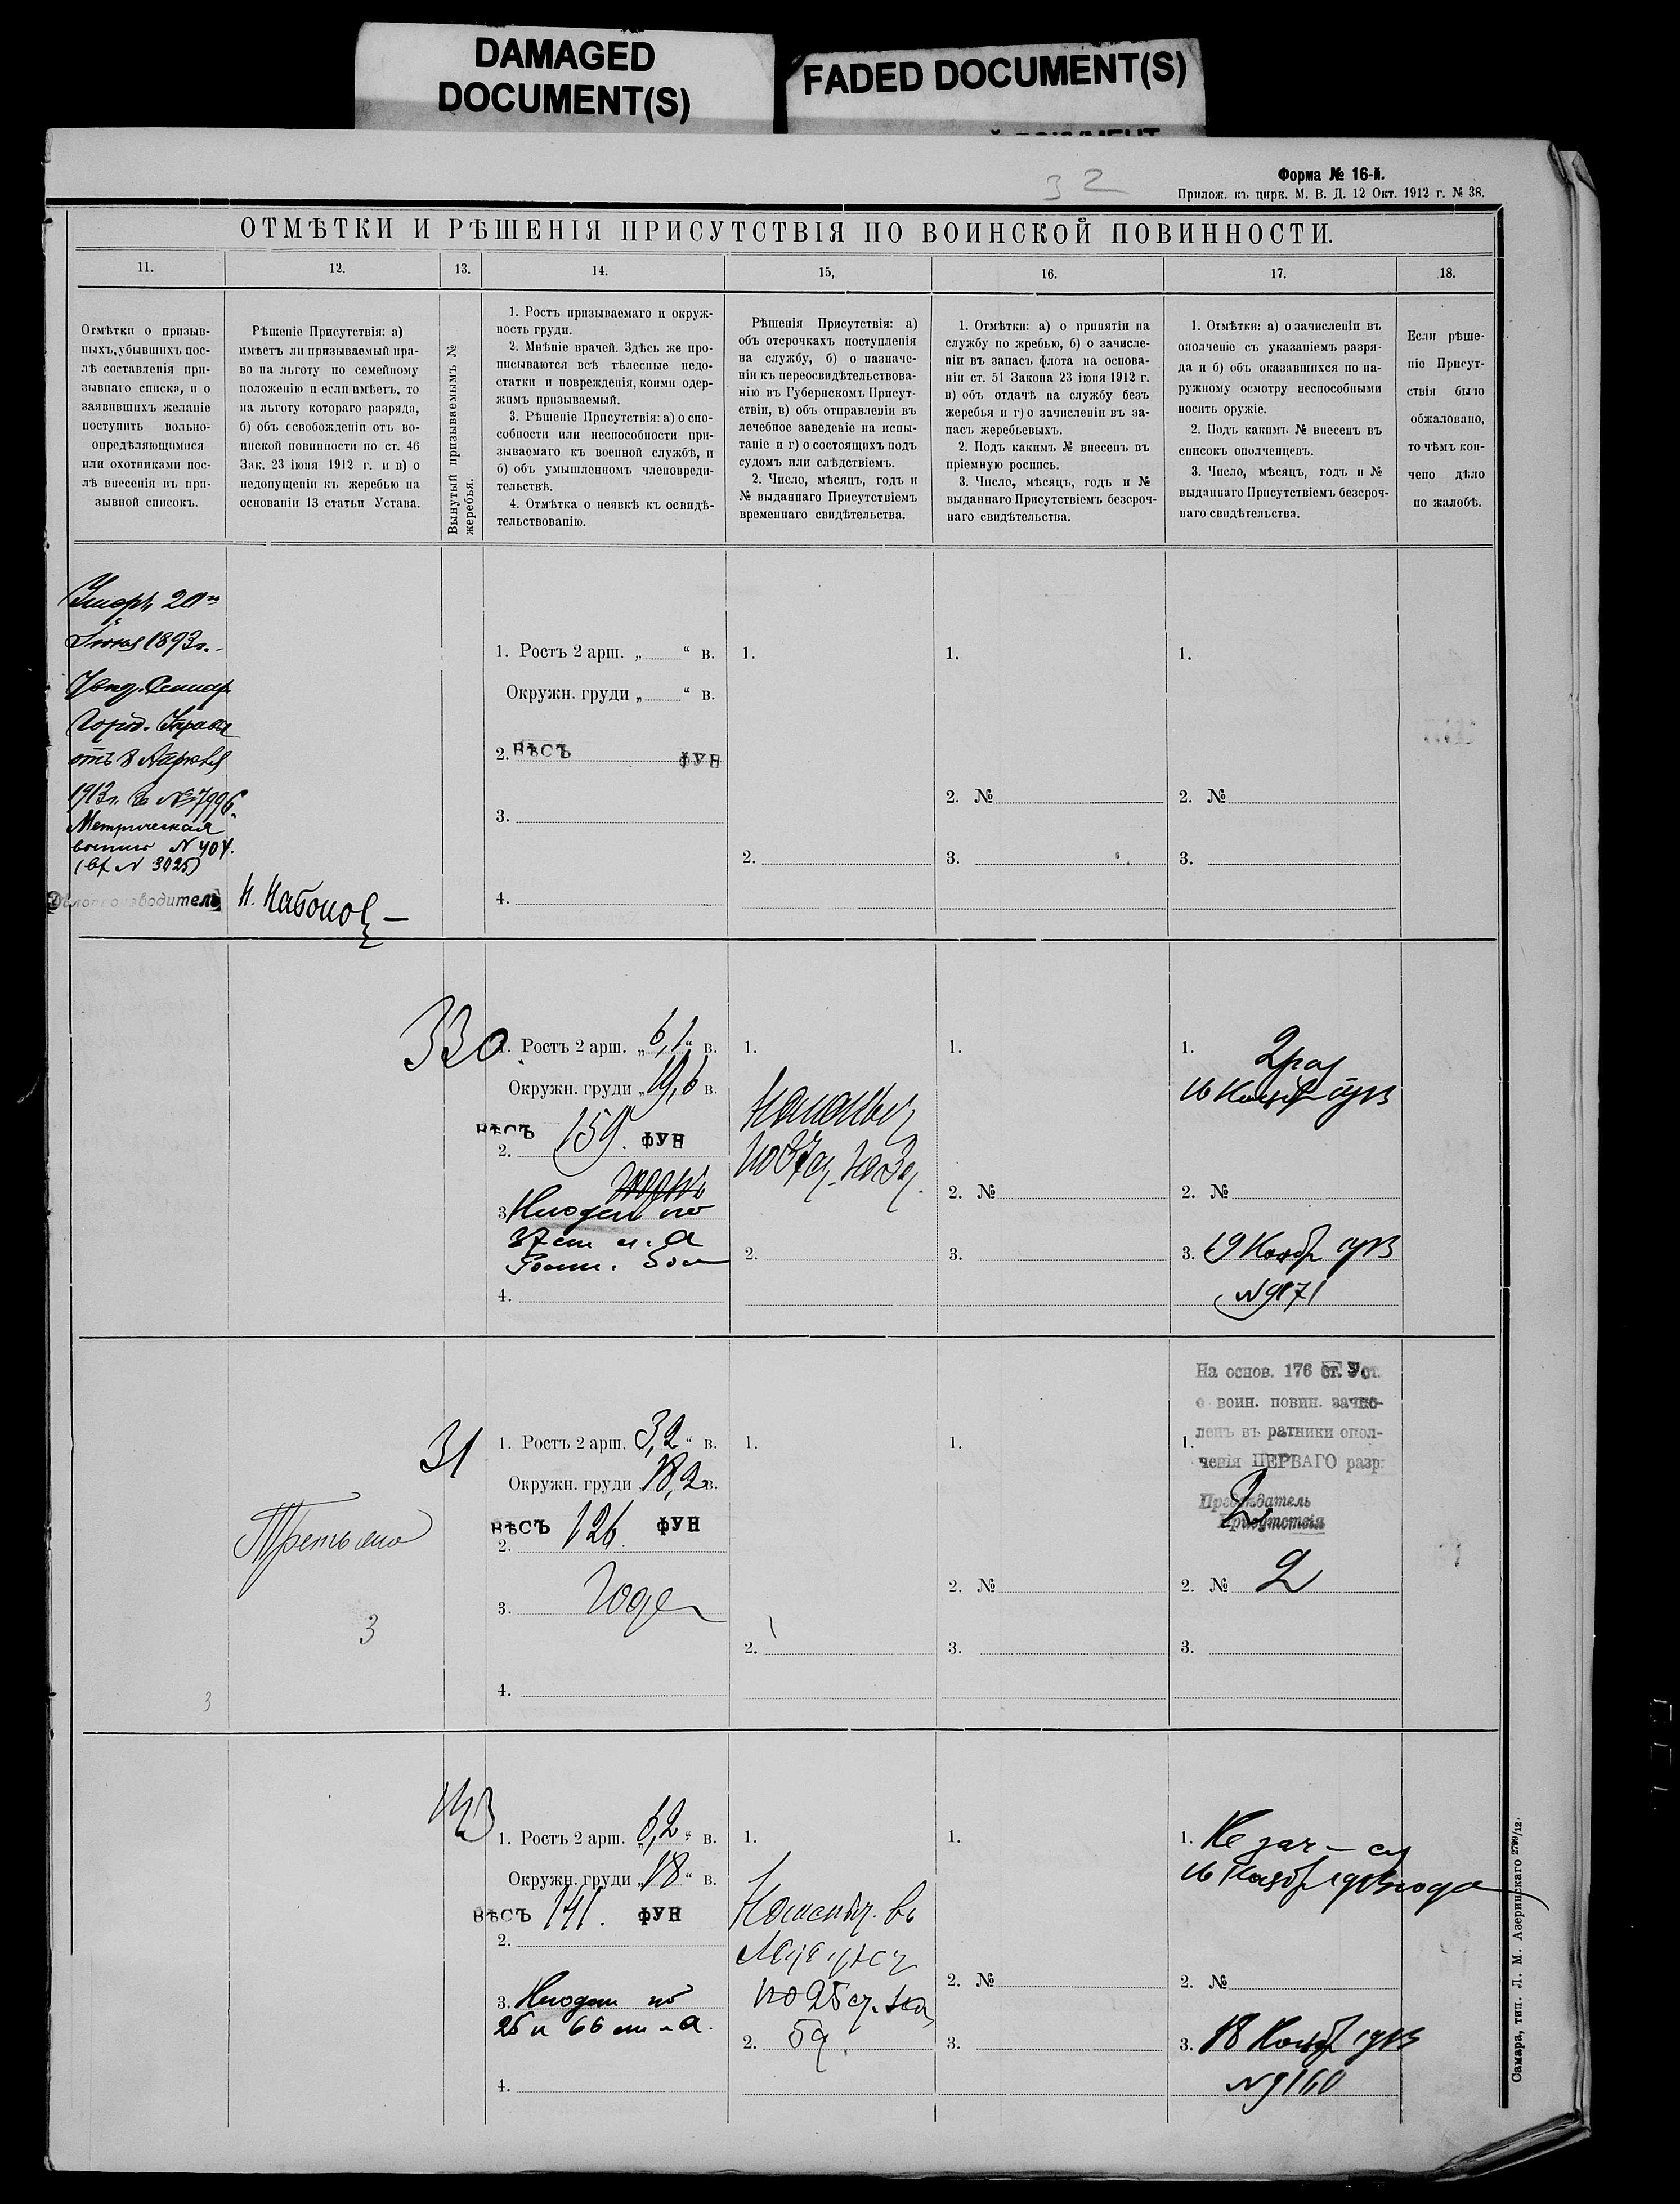 DAMAGED
DOCUMENT(S)
FADED DOCUMENT(S)
32
Форма № 16-й.
Прилож. къ цирк. М. В. Д. 12 Окт. 1912 г. № 38.
ОТМѢТКИ И РѢШЕНІЯ ПРИСУТСТВІЯ ПО ВОИНСКОЙ ПОВИННОСТИ.
11.
12.
13.
14.
15,
16.
17.
18.
Отмѣтки о призыв-
ныхъ, убывшихъ пос-
лѣ составленія при-
зывнаго списка, и о
заявившихъ желаніе
поступить вольно-
опредѣляющимися
или охотниками пос-
лѣ внесенія въ при-
зывной списокъ.
Рѣшеніе Присутствія: а)
имѣетъ ли призываемый пра-
во на льготу по семейному
положенію и если имѣетъ, то
на льготу котораго разряда,
б) объ освобожденіи отъ во-
инской повинности по ст. 46
Зак. 23 іюня 1912 г. и в) о
недопущеніи къ жеребью на
основаніи 13 статьи Устава.
Вынутый призываемымъ №
жеребья.
1. Ростъ призываемаго и окруж-
ность груди.
2. Мнѣніе врачей. Здѣсь же про-
писываются всѣ тѣлесные недо-
статки и поврежденія, коими одер-
жимъ призываемый.
3. Рѣшеніе Присутствія: а) о спо-
собности или неспособности при-
зываемаго къ военной службѣ, и
б) объ умышленномъ членовреди-
тельствѣ.
4. Отмѣтка о неявкѣ къ освидѣ-
тельствованію.
Рѣшенія Присутствія: а)
объ отсрочкахъ поступленія
на службу, б) о назначе-
ніи къ переосвидѣтельствова-
нію въ Губернскомъ Присут-
ствіи, в) объ отправленіи въ
лечебное заведеніе на испы-
таніе и г) о состоящихъ подъ
судомъ или слѣдствіемъ.
2. Число, мѣсяцъ, годъ и
№ выданнаго Присутствіемъ
временнаго свидѣтельства.
1. Отмѣтки: а) о принятіи на
службу по жребью, б) о зачисле-
ніи въ запасъ флота на основа-
ніи ст. 51 Закона 23 іюня 1912 г.
в) объ отдачѣ на службу безъ
жеребья и г) о зачисленіи въ за-
пасъ жеребьевыхъ.
2. Подъ какимъ № внесенъ въ
пріемную роспись.
3. Число, мѣсяцъ, годъ и №
выданнаго Присутствіемъ безсроч-
наго свидѣтельства.
1. Отмѣтки: а) о зачисленіи въ
ополченіе съ указаніемъ разря-
да и б) объ оказавшихся по на-
ружному осмотру неспособными
носить оружіе.
2. Подъ какимъ № внесенъ въ
списокъ ополченцевъ.
3. Число, мѣсяцъ, годъ и №
выданнаго Присутствіемъ безсроч-
наго свидѣтельства.
Если рѣше-
ніе Присут-
ствія было
обжаловано,
то чѣмъ кон-
чено дѣло
по жалобѣ.
Умеръ 20го
Іюня 1893 г.
Город. Управы
отъ 8 Апрѣля
1913 г. за № 7996
Метрическая
выпись N 404.
(вх N 3025)
Дѣлопроизводитель
1. Ростъ 2 арш. „ “ в.
Окружн. груди „ “ в.
2. ВѢСЪ ФУН
3.
4.
1.
2.
1.
2. №
3.
1.
2. №
3.
330
1. Ростъ 2 арш. „6,1“ в.
Окружн. груди „19,6 в.
ВѢСЪ 159. ФУН
2.
3. Негоденъ по
37 ст л. А
4.
1.
2.
1.
2. №
3.
1. 2 раз
16 Ноябр 1913
2. №
3. 19 Ноябр 1913
N 9171
31
Третьяго
3
3
1. Ростъ 2 арш. 3,2 “ в.
Окружн. груди 18,2 в.
ВѢСЪ 126. ФУН
2.
3. Годен
4.
1.
2.
1.
2. №
3.
На основ. 176 ст. Уст.
о воин. повин. зачис-
ленъ въ ратники опол-
1.
ченія ПЕРВАГО разр.
Предсѣдатель
Присутствія
2. № 2
3.
143
1. Ростъ 2 арш. „6,2“ в.
Окружн. груди „18“ в.
ВѢСЪ 141. ФУН
2.
3. Негоден по
25 и 66 ст л А.
4.
1.
по 25 ст.
2.
1.
2. №
3.
1. Не зач-ся
16 Ноябр 1913 года
2. №
3. 18 Ноябр 1913
N 9160
Самара, тип. Л. М. Азеринскаго 2799/12.